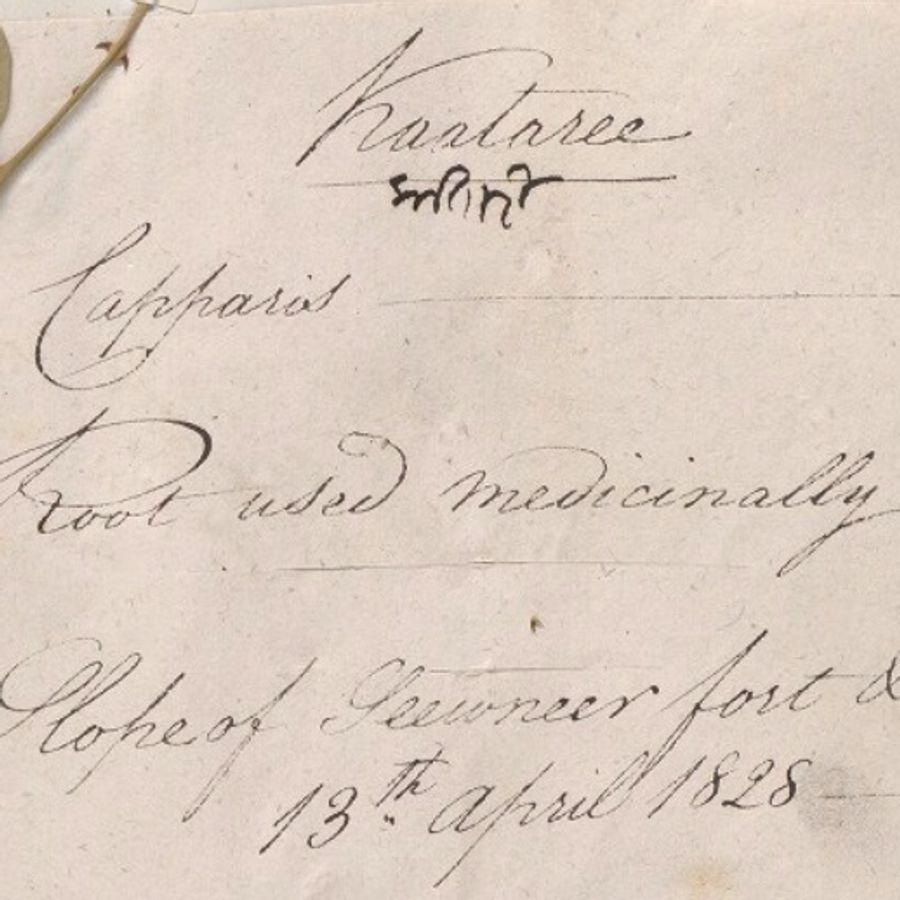 Kantaree
Capparis
Root used medicinally
Slope of Seewneer fort &
13th April 1828